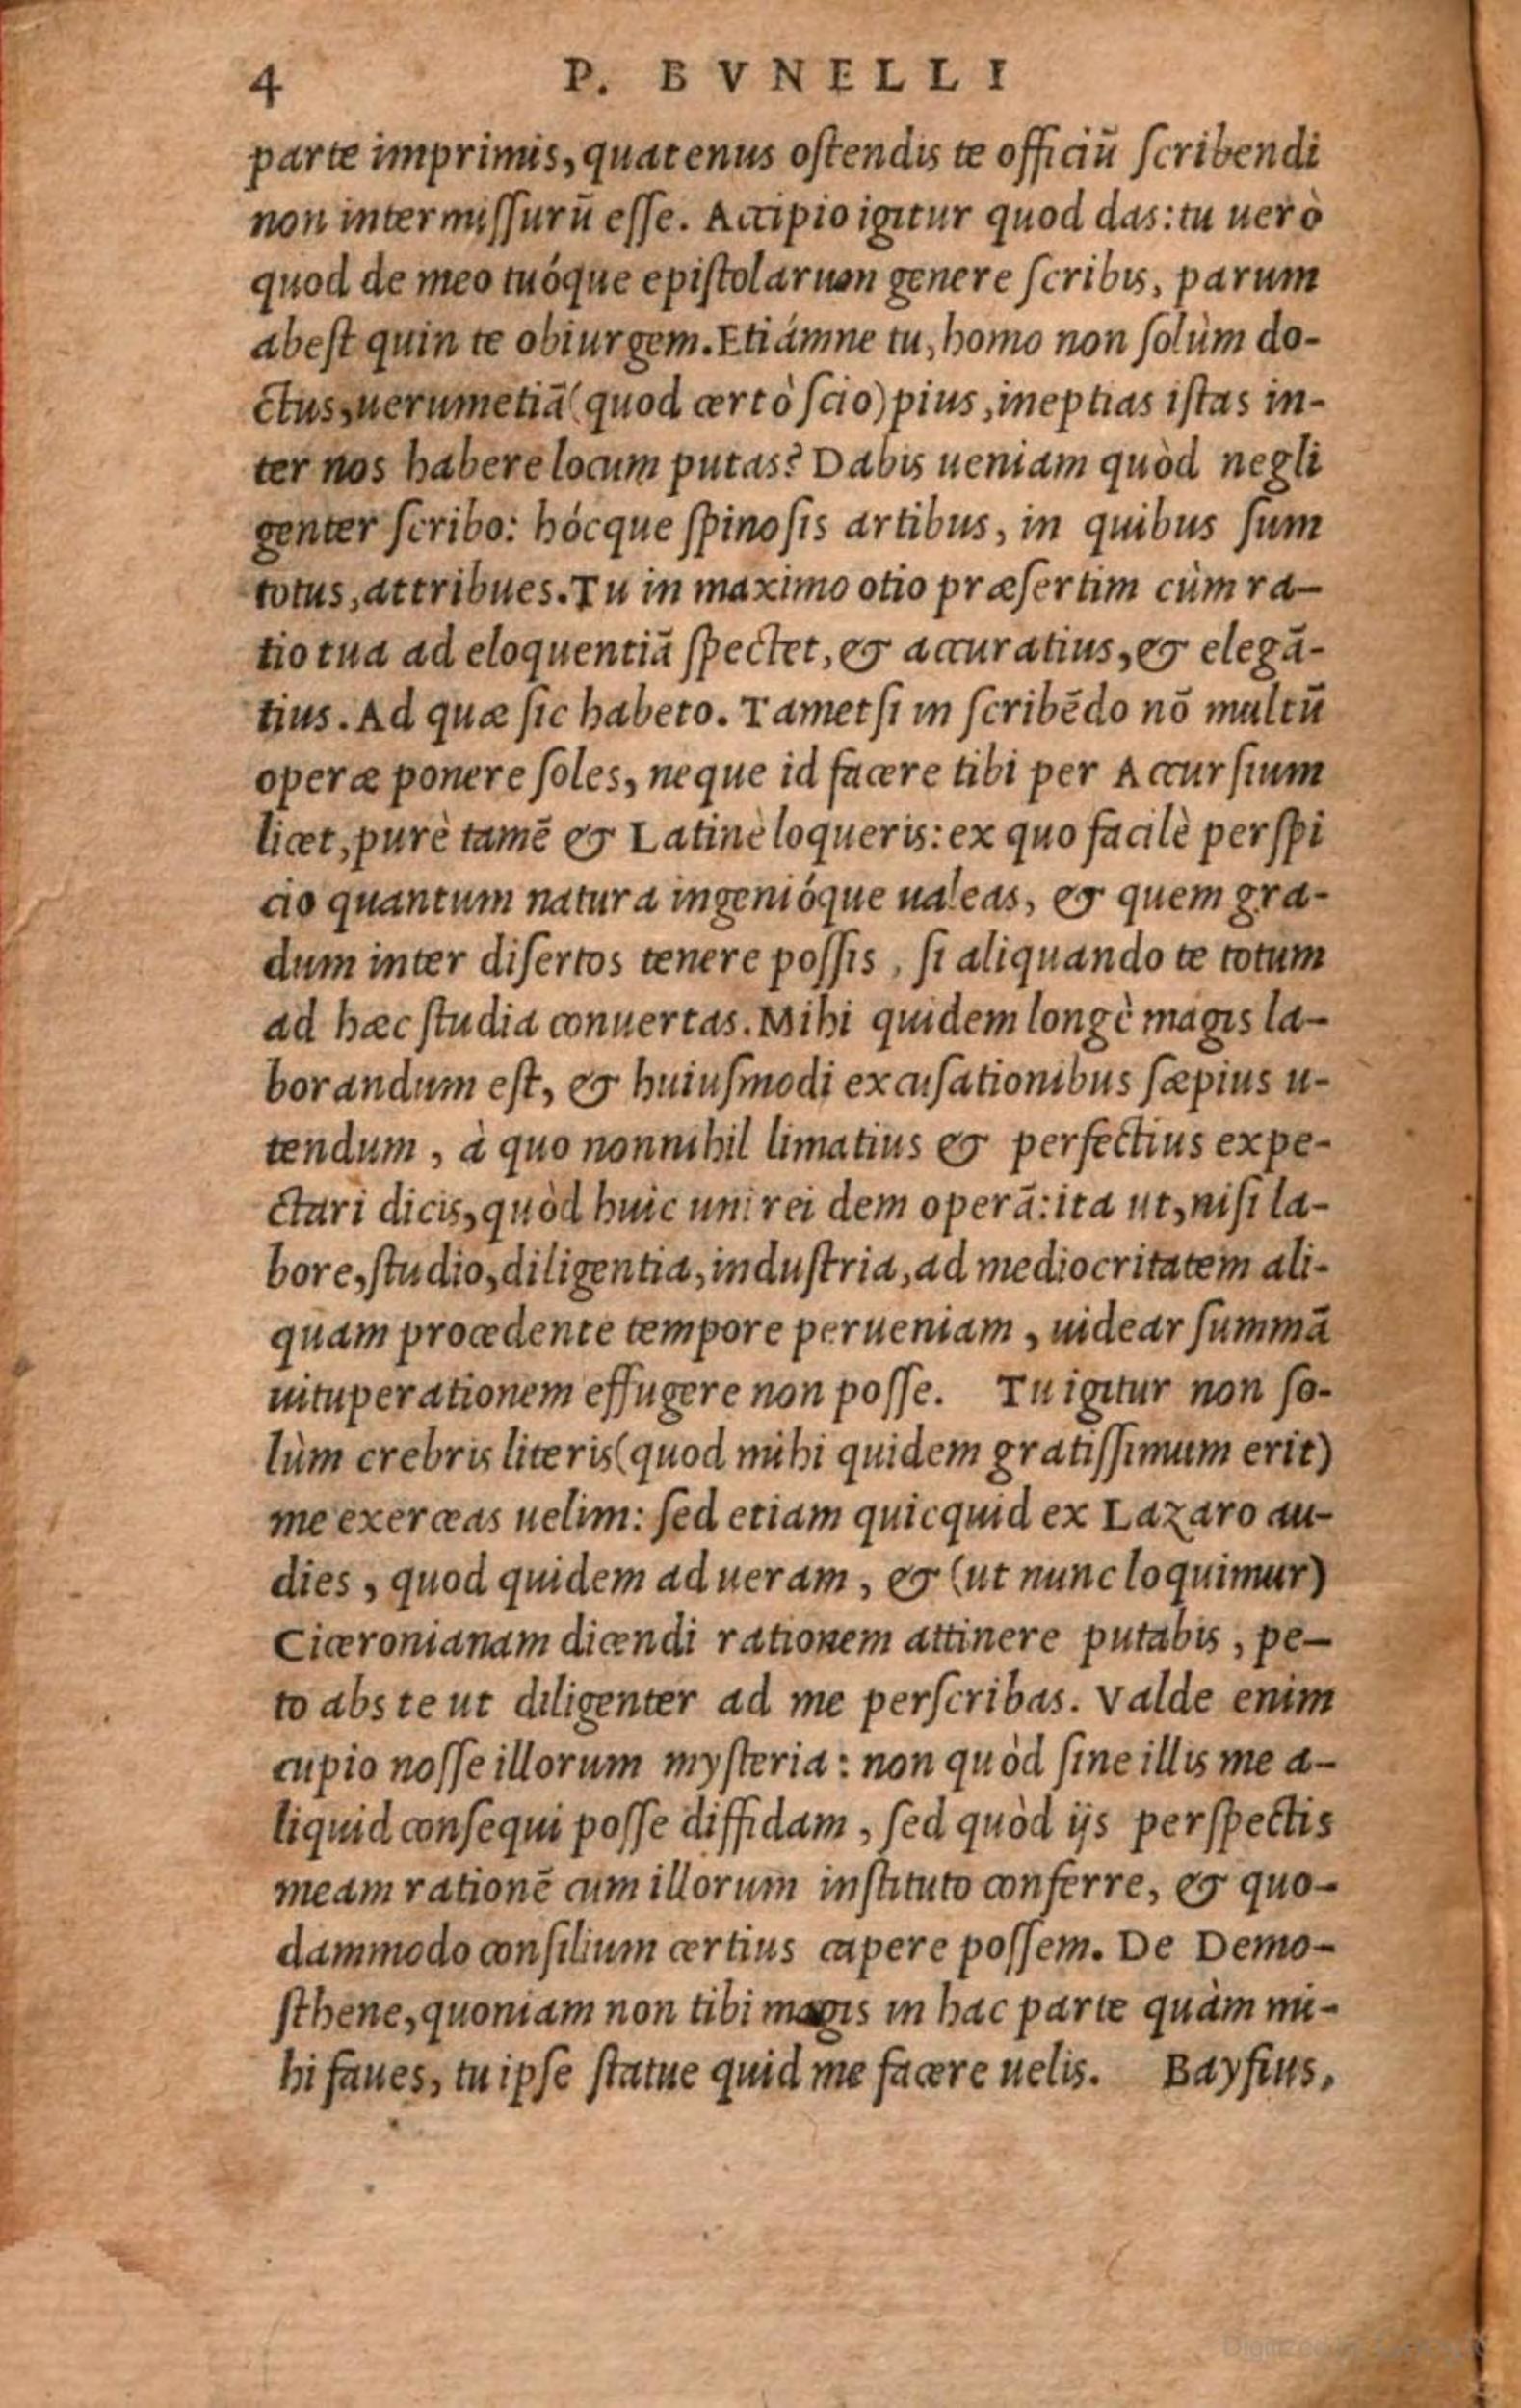 4 P. BVNELLI
parte imprimis, quatenus oſtendis te officiũ ſcribendi
non intermiſſurũ eſſe. Accipio igitur quod das: tu uerò
quod de meo tuóque epiſtolarum genere ſcribis, parum
abeſt quin te obiurgem. Etiámne tu, homo non ſolùm do-
ctus, uerumetiã (quod certò ſcio) pius, ineptias iſtas in-
ter nos habere locum putas? Dabis ueniam quòd negli
genter ſcribo: hócque ſpinoſis artibus, in quibus ſum
totus, attribues. Tu in maximo otio præſertim cùm ra-
tio tua ad eloquentiã ſpectet, & accuratius, & elegã-
tius. Ad quæ ſic habeto. Tametſi in ſcribẽdo nõ multũ
operæ ponere ſoles, neque id facere tibi per Accurſium
licet, purè tamẽ & Latinè loqueris: ex quo facilè perſpi
cio quantum natura ingenióque ualeas, & quem gra-
dum inter diſertos tenere poſſis, ſi aliquando te totum
ad hæc ſtudia conuertas. Mihi quidem longè magis la-
borandum eſt, & huiuſmodi excuſationibus ſæpius u-
tendum, à quo nonnihil limatius & perfectius expe-
ctari dicis, quòd huic uni rei dem operã: ita ut, niſi la-
bore, ſtudio, diligentia, induſtria, ad mediocritatem ali-
quam procedente tempore perueniam, uidear ſummã
uituperationem effugere non poſſe. Tu igitur non ſo-
lùm crebris literis (quod mihi quidem gratiſſimum erit)
me exerceas uelim: ſed etiam quicquid ex Lazaro au-
dies, quod quidem ad ueram, & (ut nunc loquimur)
Ciceronianam dicendi rationem attinere putabis, pe-
to abs te ut diligenter ad me perſcribas. Valde enim
cupio noſſe illorum myſteria: non quòd ſine illis me a-
liquid conſequi poſſe diffidam, ſed quòd ijs perſpectis
meam rationẽ cum illorum inſtituto conferre, & quo-
dammodo conſilium certius capere poſſem. De Demo-
ſthene, quoniam non tibi magis in hac parte quàm mi-
hi faues, tu ipſe ſtatue quid me facere uelis. Bayfius,